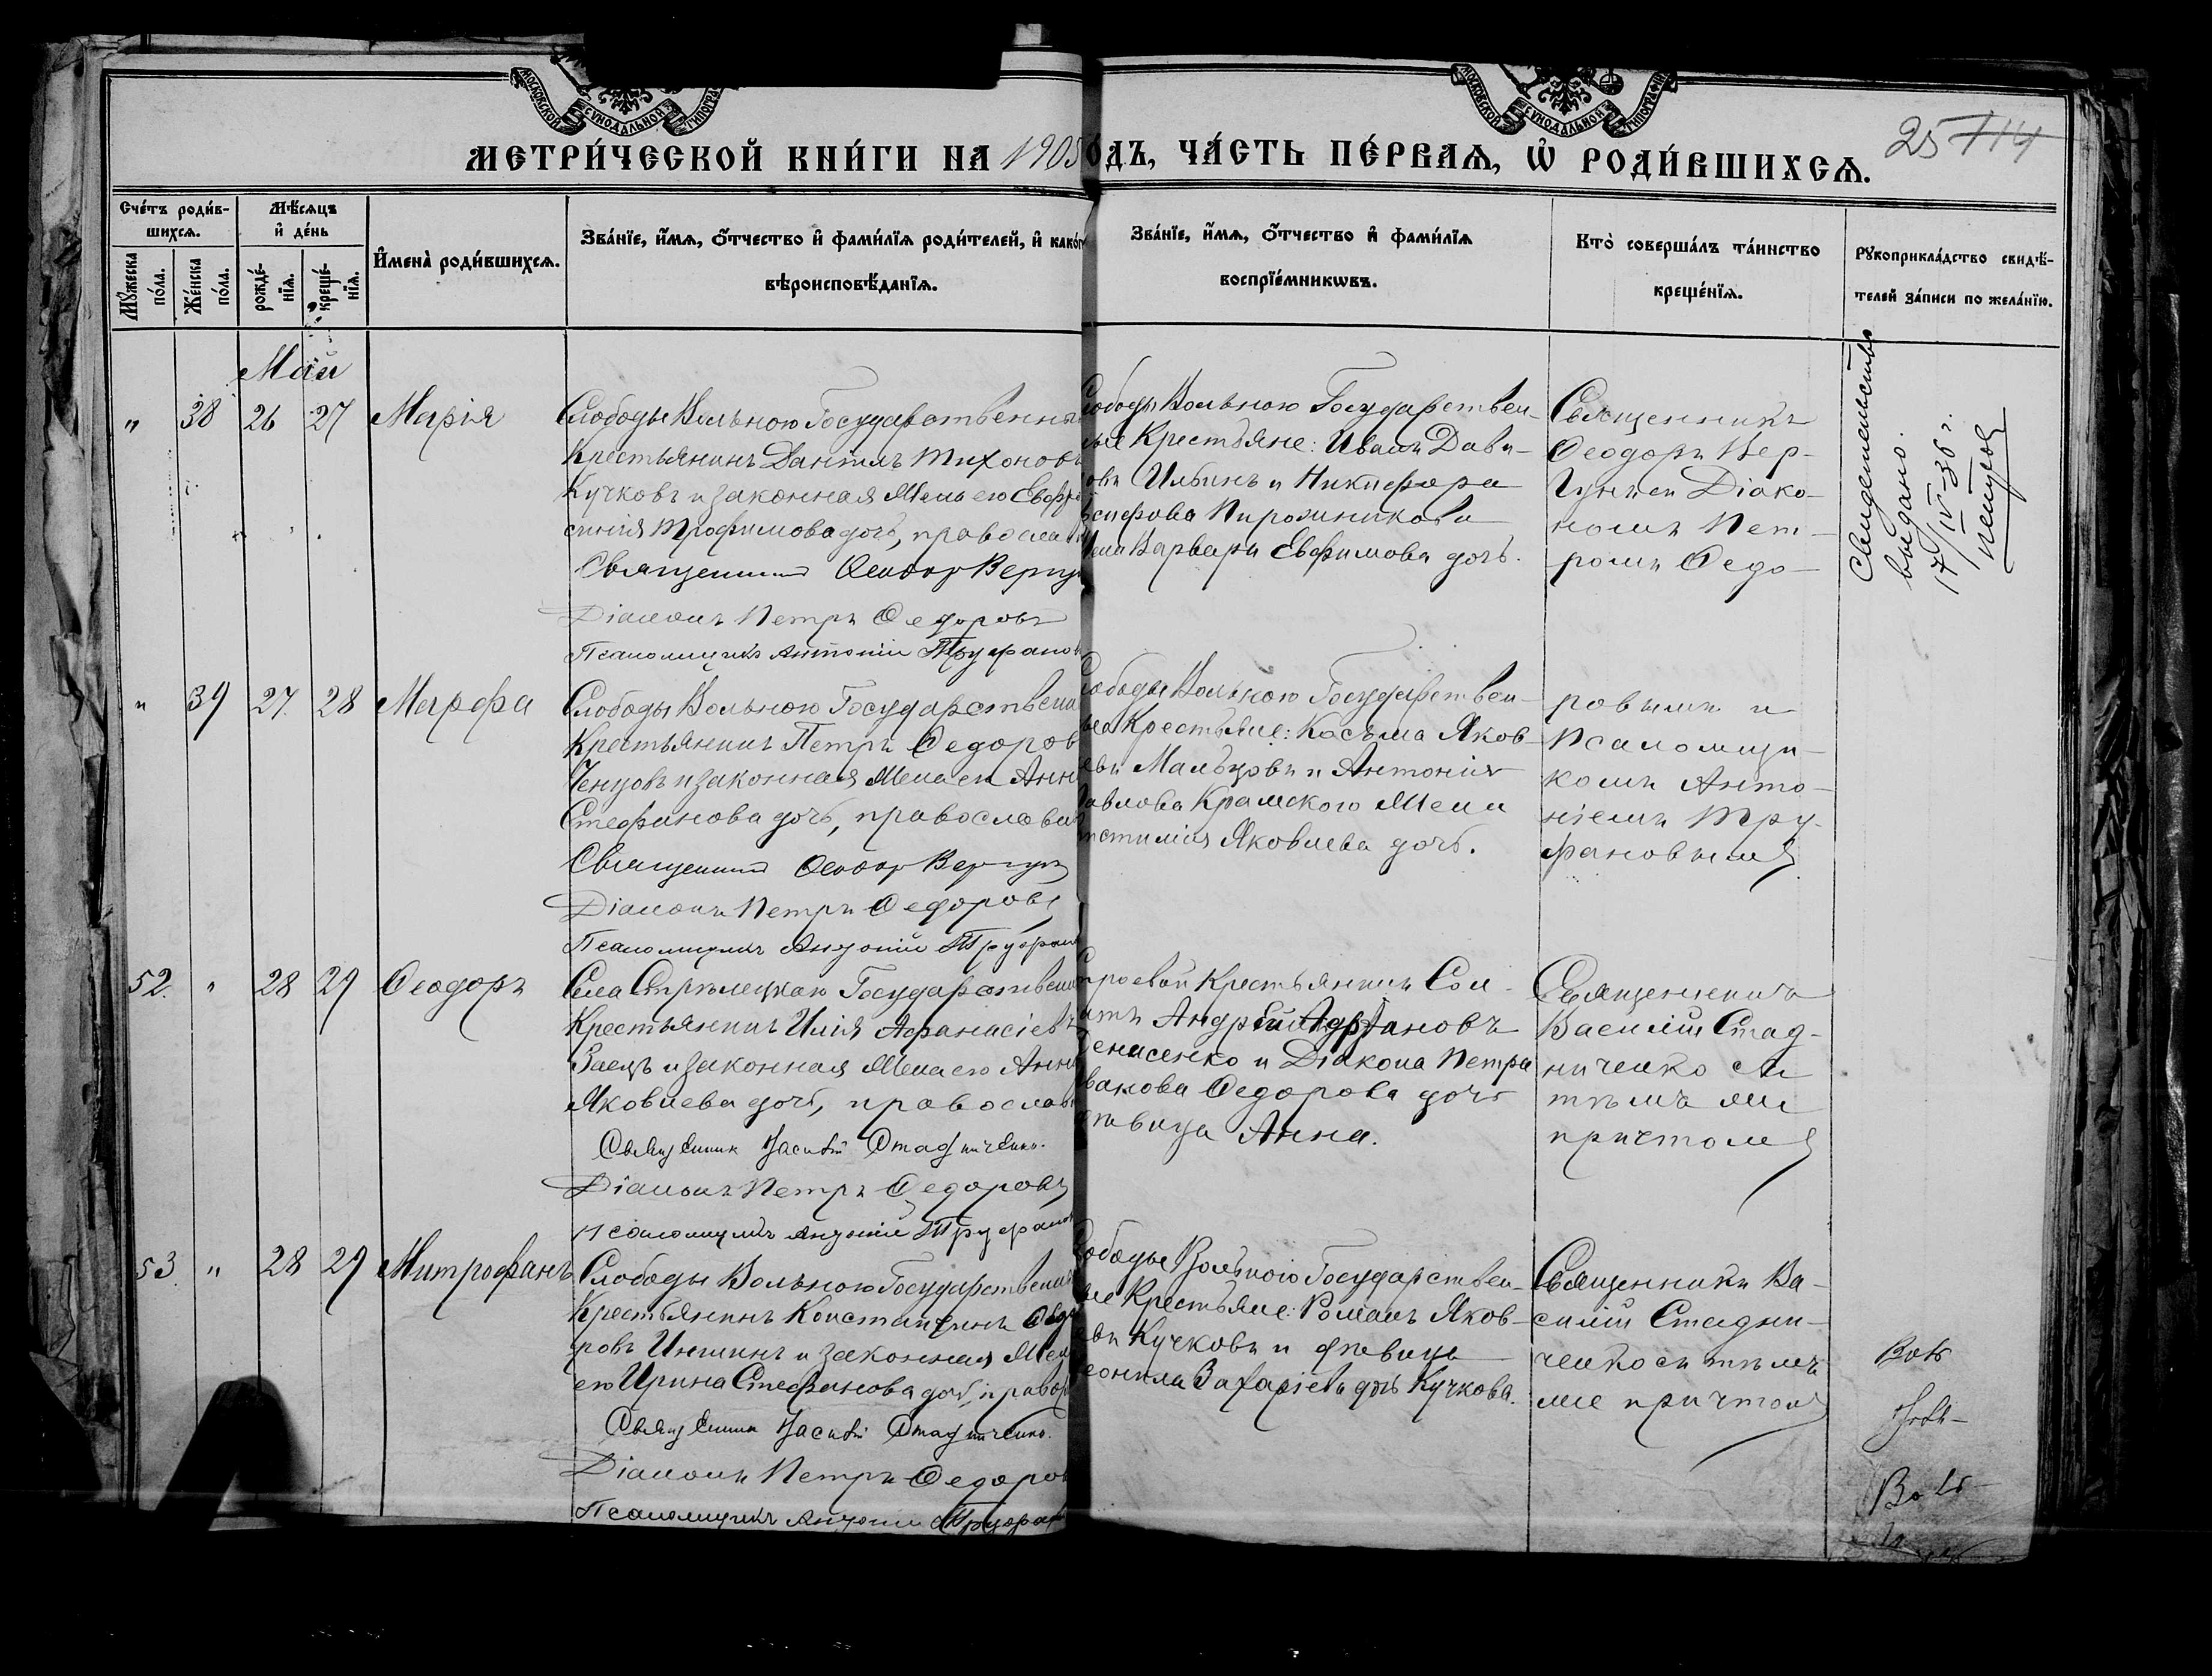 МОСКОВСКОЙ СУНОДАЛЬНОЙ ТИПОГРАФІИ
МОСКОВСКОЙ СУНОДАЛЬНОЙ ТИПОГРАФІИ
МЕТРИ́ЧЕСКОЙ КНИ́ГИ НА 1905 ОДЪ, ЧА́СТЬ ПЕ́РВАѦ, Ѡ҆ РОДИ́ВШИХСѦ.
25 114
Сче́тъ роди́в-
шихсѧ.
Мꙋ́жеска
по́ла.
Же́нска
по́ла.
Мѣ́сѧцъ
и҆ де́нь
рожде́-
нїѧ.
креще́-
нїѧ.
И҆мена̀ роди́вшихсѧ.
Зва́нїе, и҆́мѧ, ѻ҆́тчество и҆ фами́лїѧ роди́телей, и҆ како́г
вѣроисповѣ́данїѧ.
Зва́нїе, и҆́мѧ, ѻ҆́тчество и҆ фами́лїѧ
воспрїе́мникѡвъ.
Кто̀ соверша́лъ та́инство
креще́нїѧ.
Рꙋкоприкла́дство свидѣ́-
телей за́писи по жела́нїю.
Май
" 38 26 27 Марія
Слободы Вольною Государственны
Крестьянинъ Даніилъ Тихоновъ
Кучковъ и законная Жена его Евфро
синія Трофимова дочь, православн
Священникъ Ѳеодоръ Вергун
Діаконъ Петръ Ѳедоровъ
Псаломщикъ Антоній Труфанов
лободы Вольною Государствен-
ные Крестьяне: Иванъ Дави-
овъ Ильинъ и Никифора
сифова Пирожникова
Жена Варвара Евфимова дочь.
Священникъ
Ѳеодоръ Вер-
гунъ съ Діако-
номъ Пет-
ромъ Ѳедо-
Свидетельство
выдано.
17/IV-36 г.
" 39 27. 28 Марфа
Слободы Вольною Государствен
Крестьянинъ Петръ Ѳедоров
Ченцовъ и законная Жена его Анн
Стефанова дочь, православн
Священникъ Ѳеодоръ Вергунъ
Діаконъ Петръ Ѳедоровъ
Псаломщикъ Антоній Труфан
лободы Вольною Государствен-
ые Крестьяне: Косьма Яков-
евъ Мальцовъ и Антонія
авлова Крамского Жена
Яковлева дочь.
ровымъ и
Псаломщи-
комъ Анто-
ніемъ Тру-
фановымъ
52. " 28 29 Ѳеодоръ
Села Стрѣлецкаю Государствен
Крестьянинъ Илія Аѳанасіевъ
Заецъ и законная Жена его Анна
Яковлева дочь, православ
Священник Василій Стадниченко.
Діаконъ Петръ Ѳедоровъ
Псаломщикъ Антоній Труфанов
Крестьянинъ Сол-
атъ Андрей Адріановъ
енисенко и Діакона Петра
вакова Ѳедорова дочь
ѣвица Анна.
Священникъ
Василій Стад-
ниченко съ
тѣмъ же
причтомъ
53. " 28 29 Митрофанъ
Слободы Вольною Государствен
Крестьянинъ Константинъ Ѳедо
ровъ Иншинъ и законная Жен
его Ирина Стефанова дочь, правос
Священник Василій Стадниченко.
Діаконъ Петръ Ѳедоров
Псаломщикъ Антоній Труфан
лободы Вольною Государствен-
ые Крестьяне: Романъ Яков-
евъ Кучковъ и дѣвица
еонила Захаріева дочь Кучкова.
Священникъ Ва-
силій Стадни-
ченко съ тѣмъ
же причтомъ